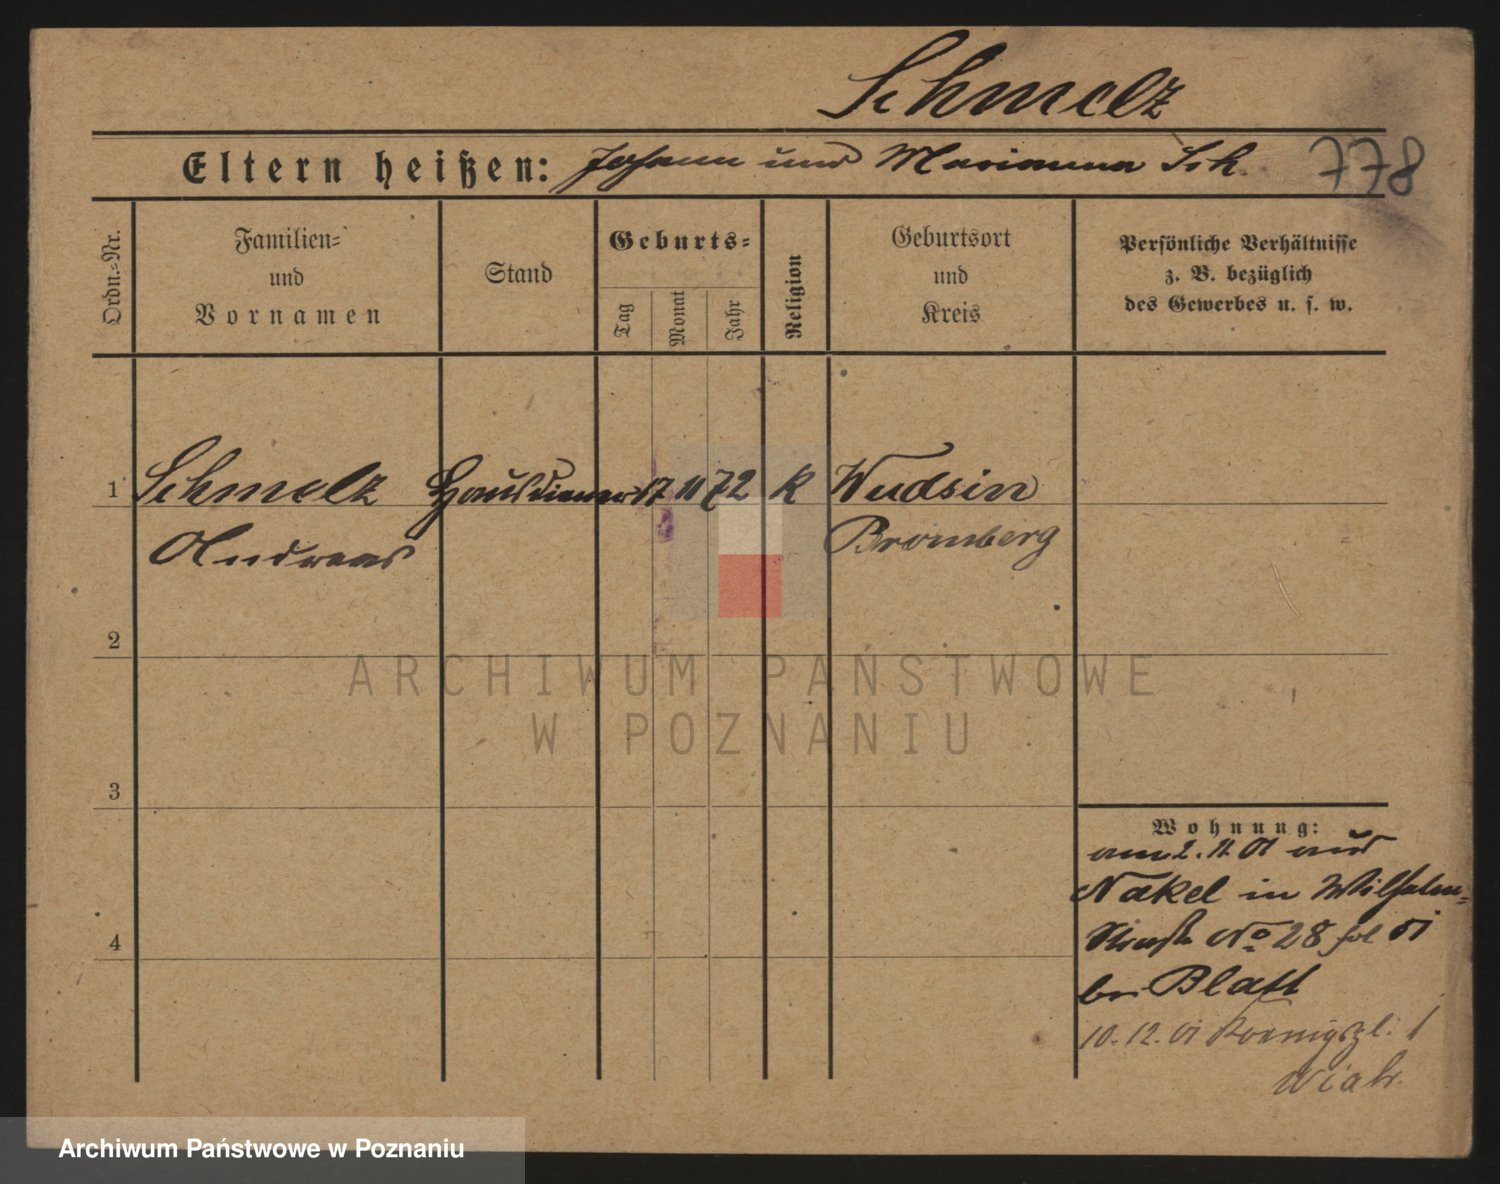 Schmelz
Eltern heißen: Johann und Marianna Sch.
778
Ordn.=Nr.
Familien=
und
Vornamen
Stand
Geburts=
Tag
Monat
Jahr
Religion
Geburtsort
und
Kreis
Persönliche Verhältnisse
z. B. bezüglich
des Gewerbes u. s. w.
1 Schmelz Hausdiener 17 11 72 k Wudsin
Andreas Bromberg
2
ARCHIWUM PAŃSTWOWE
W POZNANIU
3
Wohnung:
am 2. 11. 01 aus
Nakel in Wilhelm=
Straße No 28
bei Blatt
10. 12. 01 Koenigspl. 1
4
Archiwum Państwowe w Poznaniu